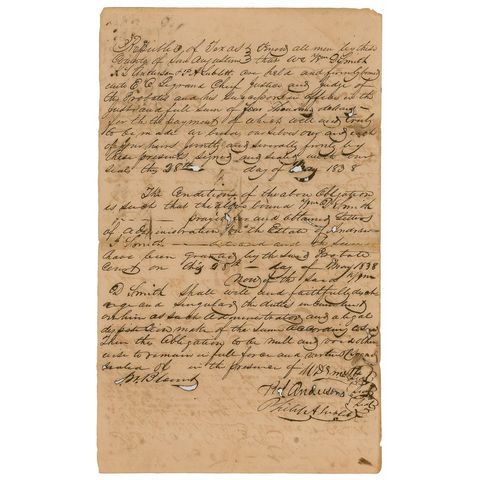 Republic of Texas Know all men by these
County of San Augustine that we Wm D Smith
K L Anderson & P A Sublett are held and firmly bound
unto E E Legrand Chief Justice and Judge of
the Probates and his Successors in office in the
just and full sum of Four Thousand dollars
for the payment of which well and truly
to be made we bind ourselves our and each
of our heirs jointly and severally firmly by
these presents signed and sealed with our
seals this 28th day of May 1838
The Condition of the above Obligation
is such that the above bound Wm D Smith
prayed for and obtained Letters
of administration on the Estate of Andrew
J Smith deceased and the same
have been granted by the said Probate
Court on this 28th day of May 1838
Now if the said Wm
D Smith shall well and faithfully disch
arge and singular the duties incumbent
on him as such administrator and a legal
disposition make of the same according to law
Then the Obligation to be null and void other
wise to remain in full force and virtue
Sealed in presence of W D Smith
K L Anderson
Philip A Sublett